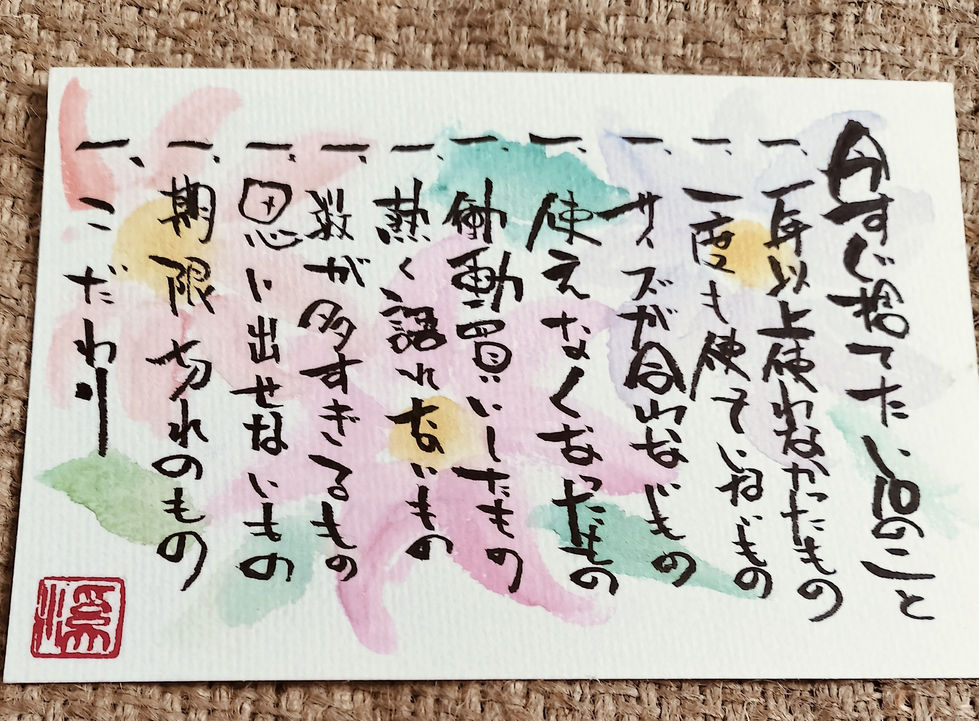 今すぐ捨てたい10のこと
一、一年以上使わなかったもの
一、一度も使ていないもの
一、サイズが合わないもの
一、使えなくなったもの
一、衝動買いしたもの
一、熱く語れないもの
一、数が多すぎるもの
一、思い出せないもの
一、期限切れのもの
一、こだわり